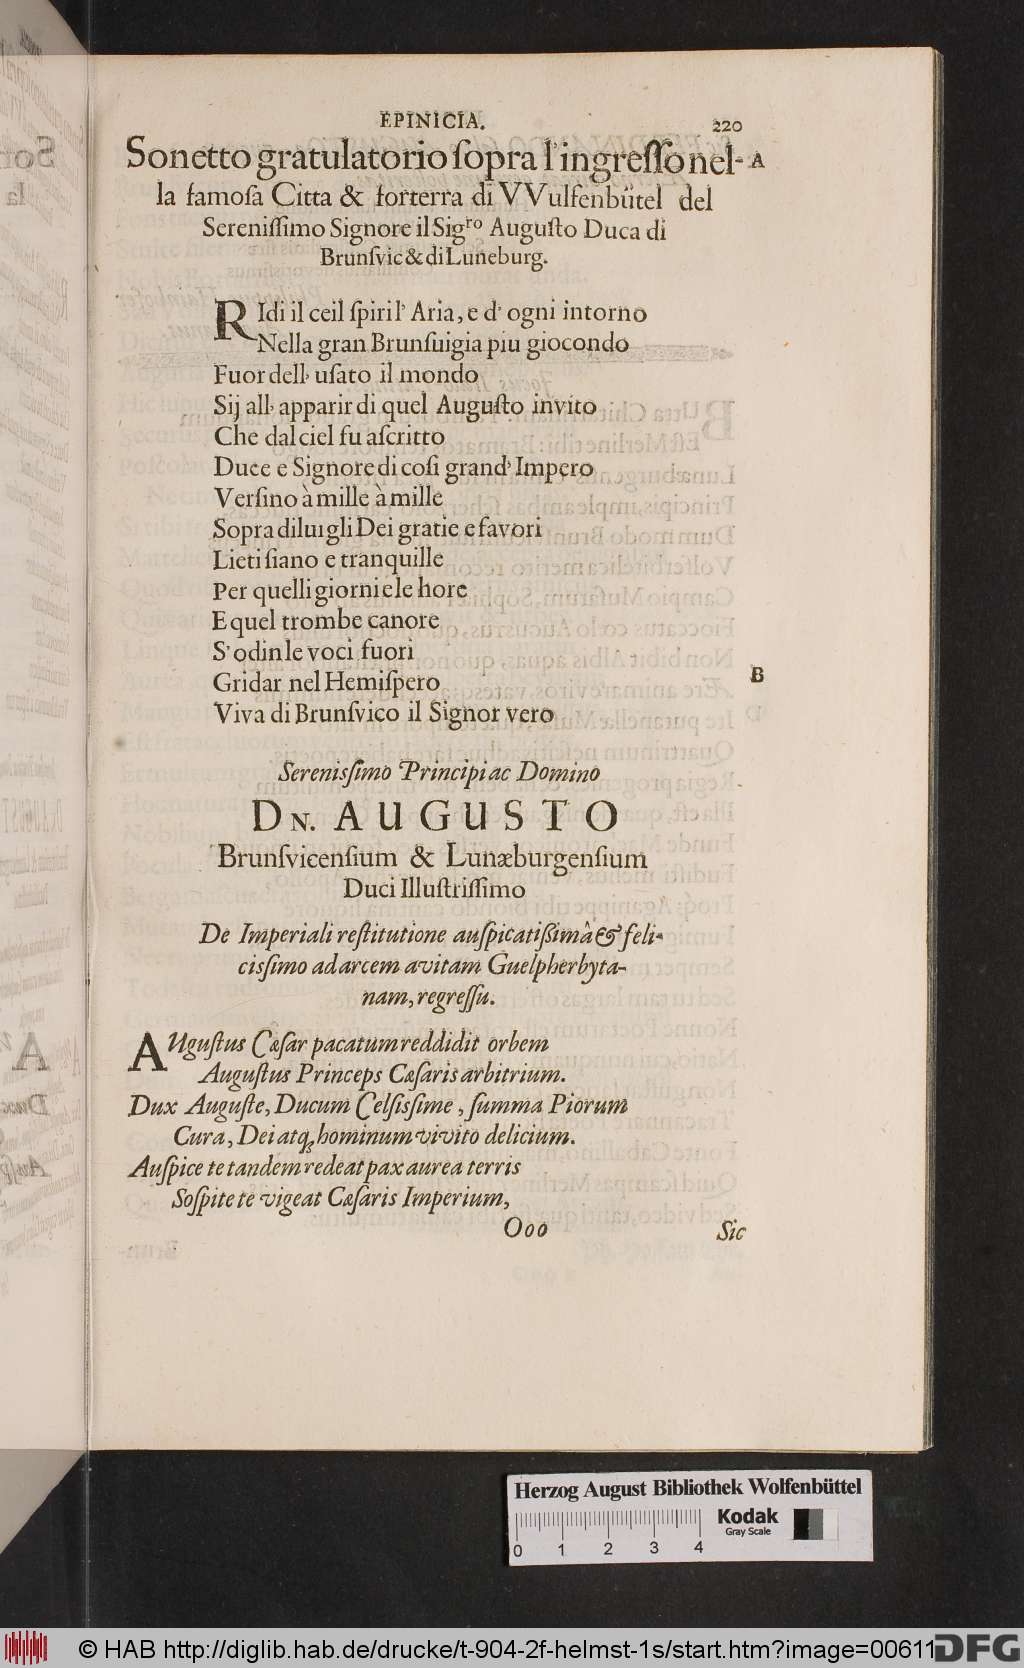 EPINICIA.
220
Sonetto gratulatorio ſopra l'ingreſſo nel- A
la famoſa Citta & forterra di VVulfenbütel del
Sereniſſimo Signore il Sigro Auguſto Duca di
Brunſvic & di Luneburg.
RIdi il ceil ſpiri l' Aria, e d' ogni intorno
Nella gran Brunſuigia piu giocondo
Fuor dell' uſato il mondo
Sij all' apparir di quel Auguſto invito
Che dal ciel fu aſcritto
Duce e Signore di coſi grand' Impero
Verſino à mille à mille
Sopra di lui gli Dei gratie e favori
Lieti ſiano e tranquille
Per quelli giorni e le hore
E quel trombe canore
S'odin le voci fuori
Gridar nel Hemiſpero
B
Viva di Brunſvico il Signor vero
Sereniſſimo Principi ac Domino
DN. AUGUSTO
Brunſvicenſium & Lunæburgenſium
Duci Illuſtriſſimo
De Imperiali reſtitutione auſpicatißimâ & feli-
ciſſimo ad arcem avitam Guelpherbyta-
nam, regreſſu.
AUguſtus Cæſar pacatum reddidit orbem
Auguſtus Princeps Cæſaris arbitrium.
Dux Auguſte, Ducum Celſiſſime, ſumma Piorum
Cura, Dei atq; hominum vivito delicium.
Auſpice te tandem redeat pax aurea terris
Soſpite te vigeat Cæſaris Imperium,
Ooo
Sic
Herzog August Bibliothek Wolfenbüttel
Kodak
Gray Scale
0 1 2 3 4
© HAB http://diglib.hab.de/drucke/t-904-2f-helmst-1s/start.htm?image=00611
DFG